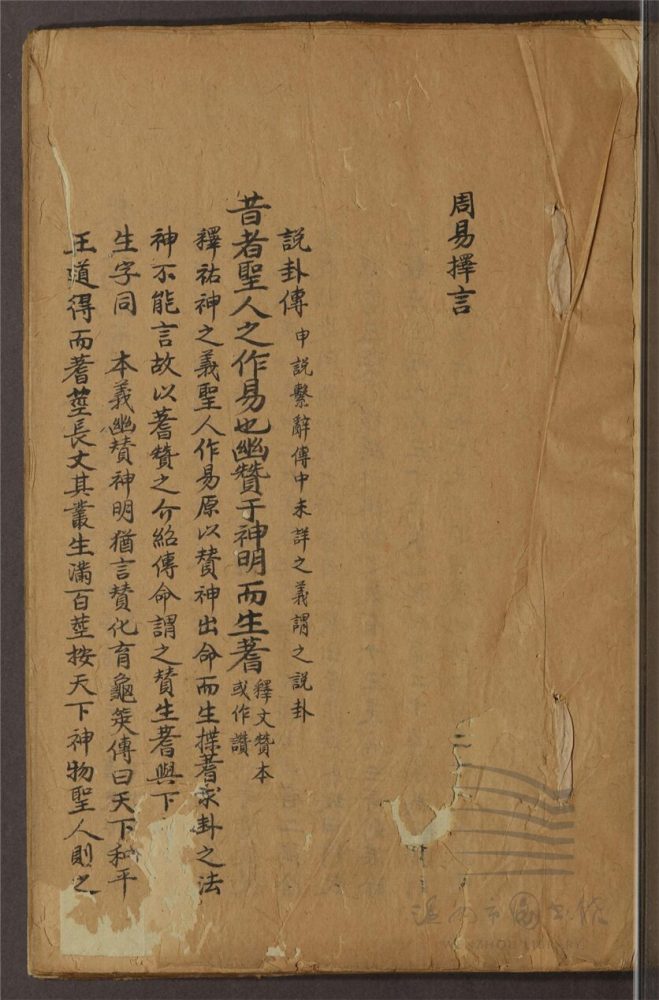 周易擇言
說卦傳 申說繫辭傳中未詳之義謂之說卦
昔者聖人之作易也幽贊于神明而生蓍 釋文贊本
或作讚
釋祐神之義聖人作易原以贊神出命而生揲蓍求卦之法
神不能言故以蓍贊之介紹傳命謂之贊生蓍與下
生字同 本義幽贊神明猶言贊化育龜筴傳曰天下和平
王道得而蓍莖長丈其叢生滿百莖按天下神物聖人則之
温州市图书馆
WENZHOU LIBRARY